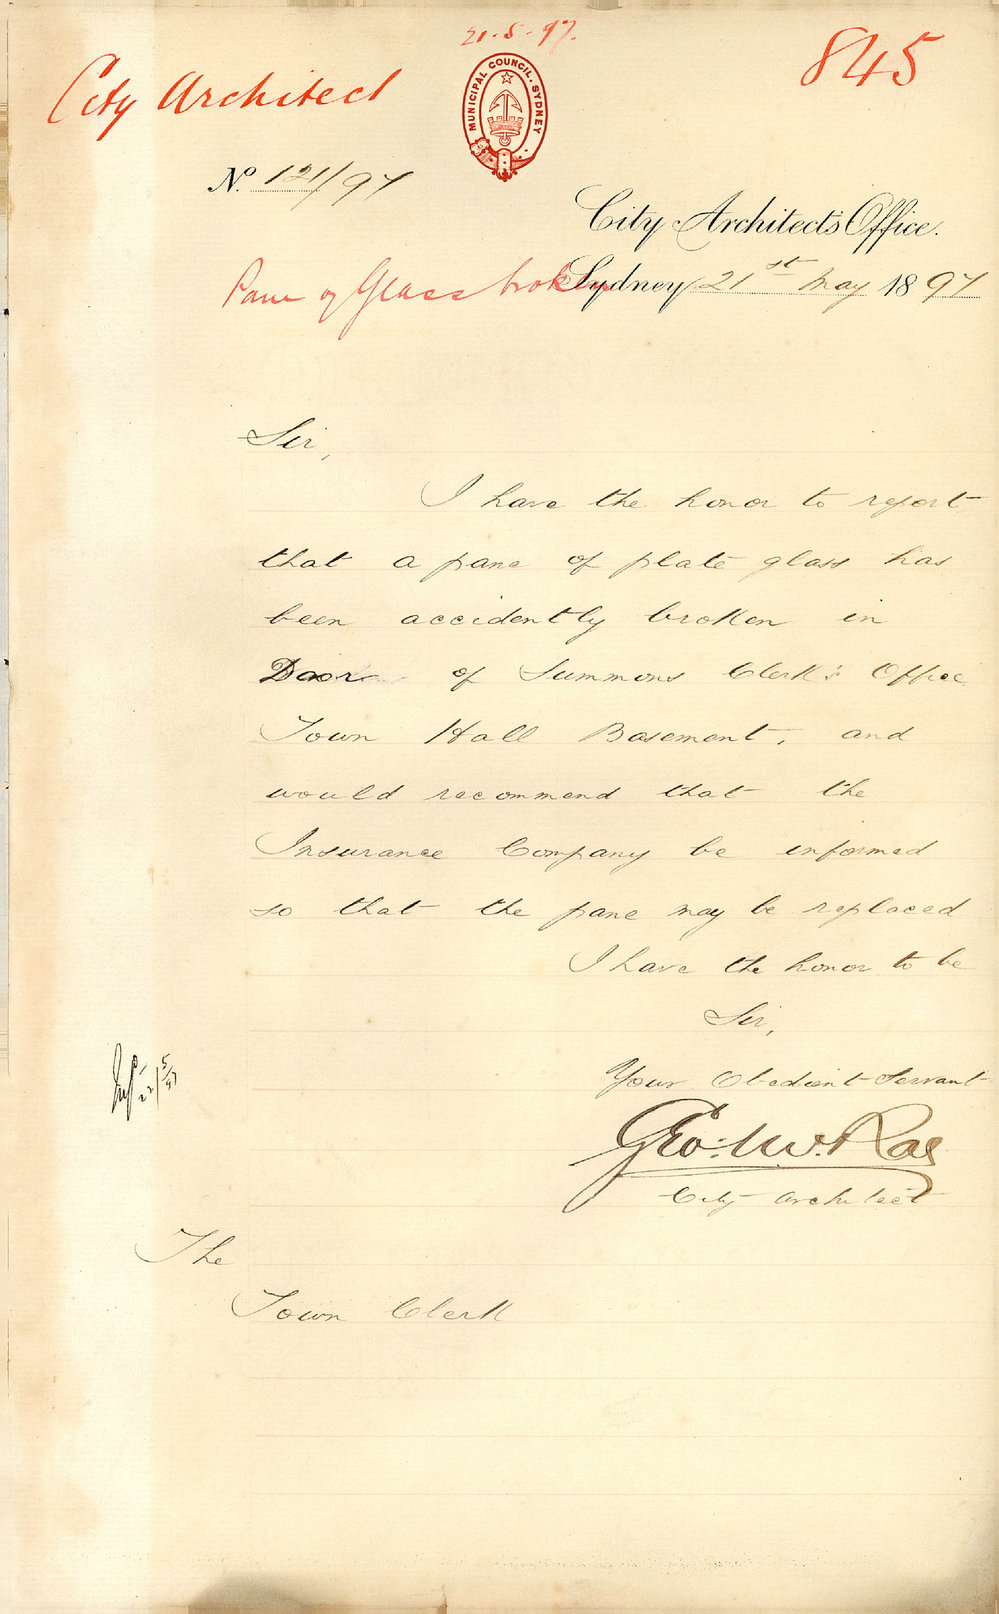 21.5.97.
845
City Architect
MUNICIPAL COUNCIL. SYDNEY
No. 121/97
City Architect's Office.
Pane of Glass broken
Sydney 21st May 1897
Sir,
I have the honor to report
that a pane of plate glass has
been accidently broken in
Door of Summons Clerk's Office
Town Hall Basement, and
would recommend that the
Insurance Company be informed
so that the pane may be replaced
I have the honor to be
Sir,
Your Obedient Servant
Geo: McRae
City Architect
22/5/97
The
Town Clerk